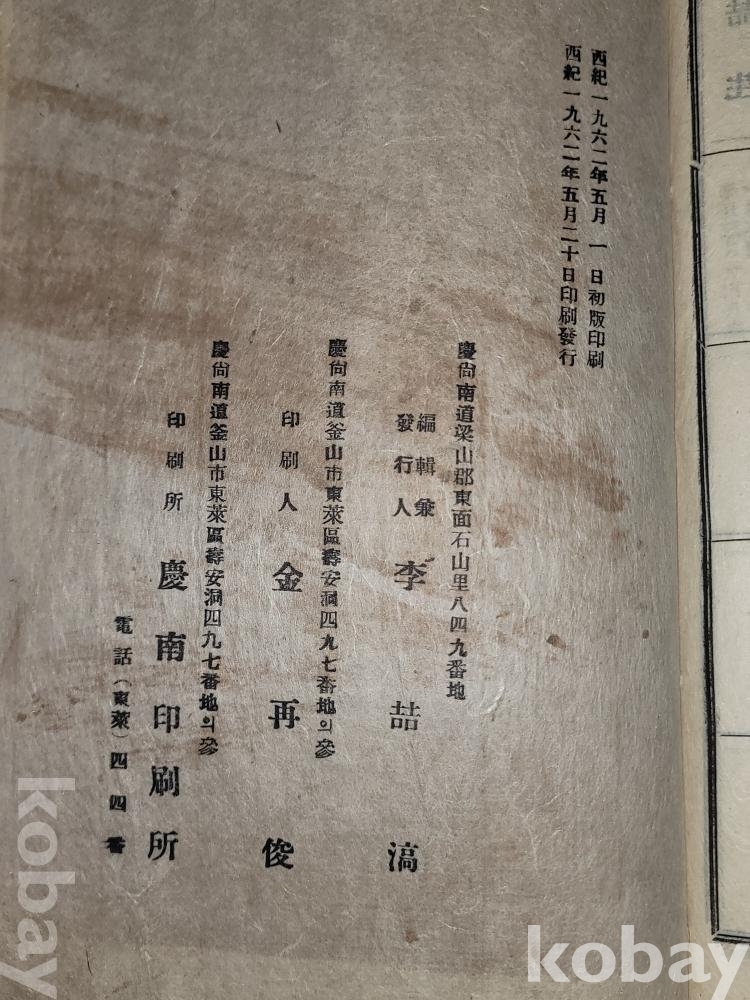 西紀一九六二年五月一日初版印刷
西紀一九六二年五月二十日印刷發行
慶尙南道梁山郡東面石山里八四九番地
編輯兼
發行人 李喆滈
慶尙南道釜山市東萊區壽安洞四九七番地의參
印刷人 金再俊
慶尙南道釜山市東萊區壽安洞四九七番地의參
印刷所 慶南印刷所
電話(東萊)四四番
kobay
kobay